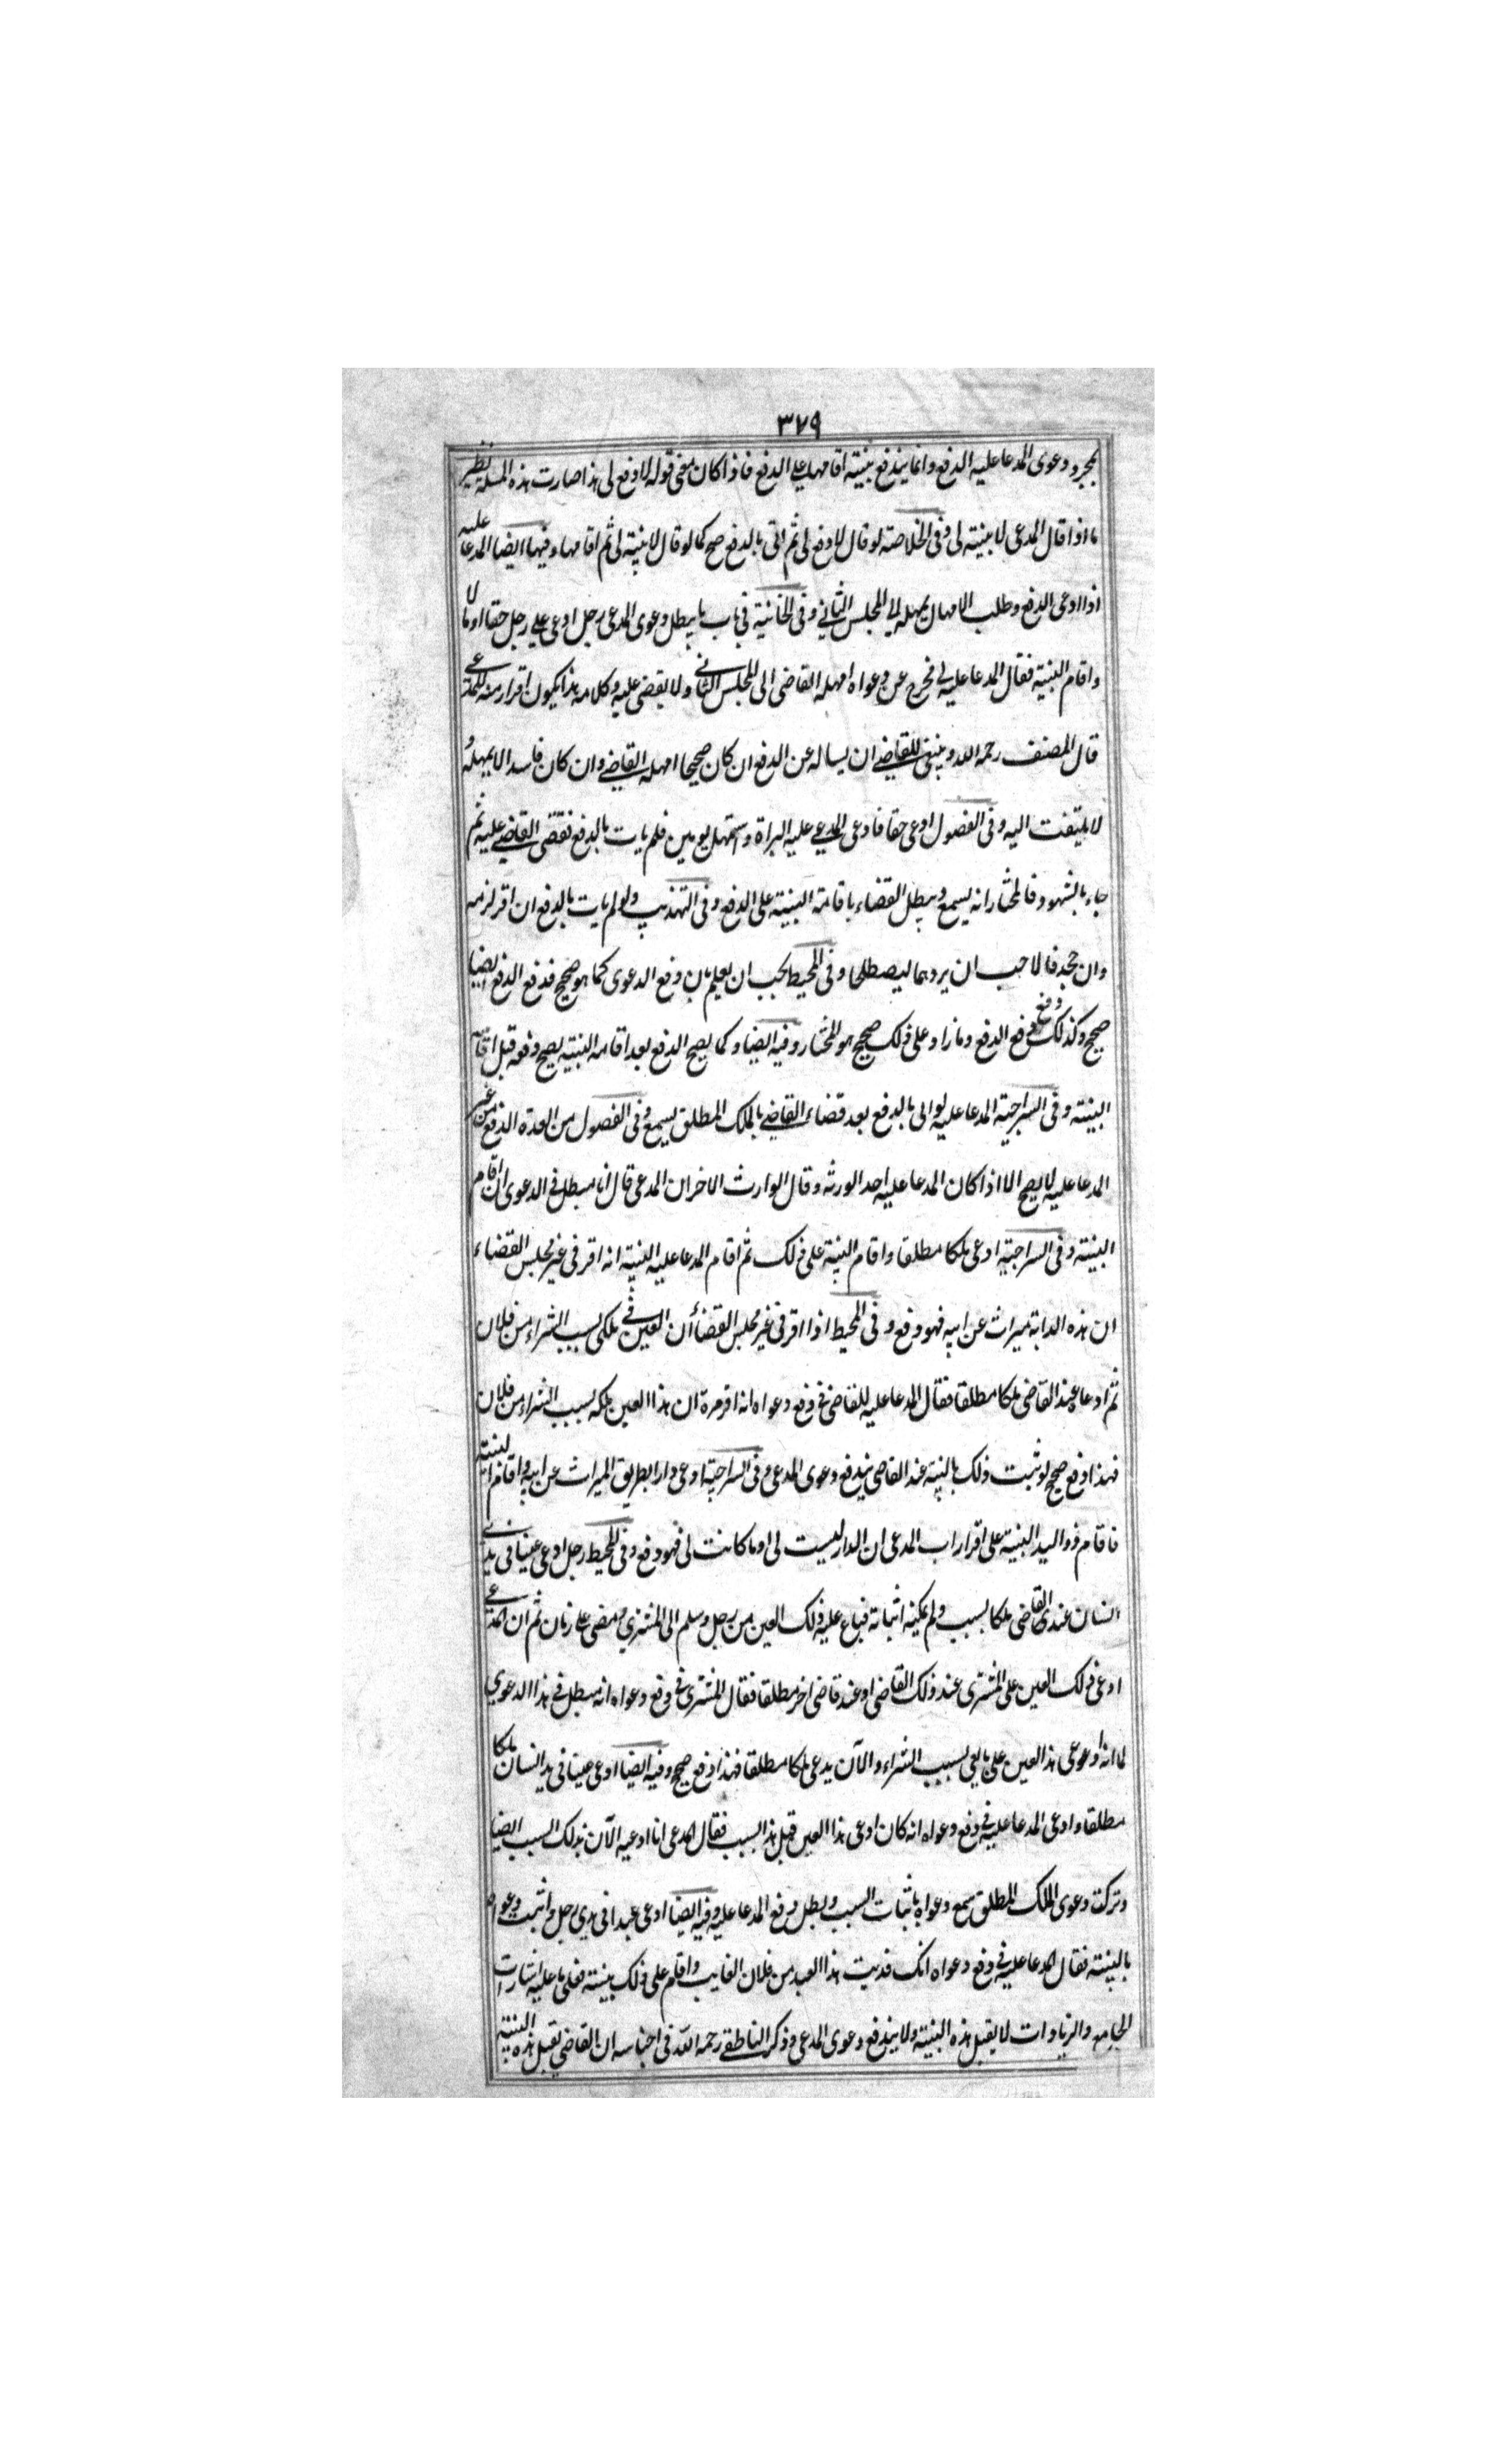 ٣٧٩
بمجرد دعوى المدعا عليه الدفع وانما يندفع ببينة اقامها على الدفع فاذا كان معنى قوله لا دفع لى هذا صارت هذه المسئلة نظير
ما اذا قال المدعى لا بينة لى وفى الخلاصة لو قال لا دفع لى ثم اتى بالدفع صح كما لو قال لا بينة لى ثم اقامها وفيها ايضا المدعا عليه
اذا ادعى الدفع وطلب الامهال يمهله الى المجلس الثانى وفى الخانية فى باب ما يبطل دعوى المدعى رجل ادعى على رجل حقا او مالا
واقام البينة فقال المدعا عليه لى مخرج عن دعواه امهله القاضى الى المجلس الثانى ولا يقضى عليه وكلامه هذا يكون اقرار منه للمدعى
قال المصنف رحمه الله وينبغى للقاضى ان يساله عن الدفع ان كان صحيحا امهله القاضى وان كان فاسدا لا يمهله و
لا يلتفت اليه وفى الفصول ادعى حقا فادعى المدعى عليه البراة واستمهل يومين فلم يات بالدفع فقضى القاضى عليه ثم
جاء بالشهود فالمختار انه يسمع ويبطل القضاء باقامة البينة على الدفع وفى التهذيب ولو لم يات بالدفع ان اقر لزمه
وان جحد فالاحب ان يردهما ليصطلحا وفى المحيط يجب ان يعلم بان دفع الدعوى كما هو صحيح فدفع الدفع ايضا
صحيح وكذلك دفع دفع الدفع وما زاد على ذلك صحيح هو المختار وفيه ايضا وكما يصح الدفع بعد اقامة البينة يصح دفعه قبل اقامة
البينة وفى السراجية المدعا عليه لو اتى بالدفع بعد قضاء القاضى بالملك المطلق يسمع وفى الفصول من العدة الدفع من غير
المدعا عليه لا يصح الا اذا كان المدعا عليه احد الورثه وقال الوارث الاخر ان المدعى قال انا مبطل فى الدعوى ان اقام
البينة وفى السراجية ادعى ملكا مطلقا واقام البينة على ذلك ثم اقام المدعا عليه البينة انه اقر فى غير مجلس القضاء
ان هذه الدابة ميراث عن ابيه فهو دفع وفى المحيط اذا اقر فى غير مجلس القضأ ان العين فى ملكى بسبب الشراء من فلان
ثم ادعاه عند القاضى ملكا مطلقا فقال المدعا عليه للقاضى فى دفع دعواه انه اقر مرة ان هذا العين ملكه بسبب الشراء من فلان
فهذا دفع صحيح لو ثبت ذلك بالبينة عند القاضى يندفع دعوى المدعى وفى السراجية ادعى دارا بطريق الميراث عن ابيه واقام البينة
فاقام ذو اليد البينة على اقرار اب المدعى ان الدار ليست لى او ما كانت لى فهو دفع وفى المحيط رجل ادعى عينا فى يدى
انسان عند القاضى ملكا بسبب ولم يمكنه اثباته فباع عليه ذلك العين من رجل وسلم الى المشترى ومضى على زمان ثم ان المدعى
ادعى ذلك العين على المشترى عند ذلك القاضى او عند قاضى اخر مطلقا فقال المشترى فى دفع دعواه انه مبطل فى هذا الدعوى
لما انه ادعى هذا العين على بايعى بسبب الشراء والآن يدعى ملكا مطلقا فهذا دفع صحيح وفيه ايضا ادعى عينا فى يد انسان ملكا
مطلقا وادعى المدعا عليه فى دفع دعواه انه كان ادعى هذا العين قبل هذا بسبب فقال المدعى انا ادعيه الآن بذلك السبب ايضا
وتركت دعوى الملك المطلق سمع دعواه باثبات السبب وبطل دفع المدعا عليه وفيه ايضا ادعى عبدا فى يدى رجل واثبت دعواه
بالبينة فقال المدعا عليه فى دفع دعواه انك هذا العبد من فلان الغايب واقام على ذلك بينة فعلى ما عليه اشارات
الجامع والزيادات لا يقبل هذه البينة ولا يندفع دعوى المدعى وذكر الناطفى رحمه الله فى اجناسه ان القاضى يقبل هذه البينة